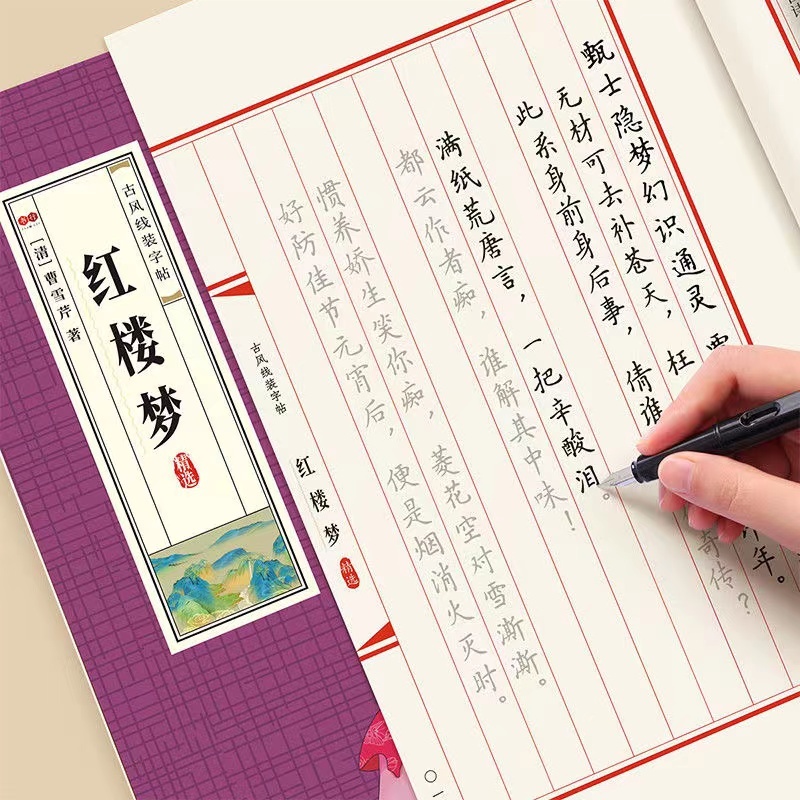 古风线装字帖
红楼梦
精选
[清]曹雪芹 著
甄士隐梦幻识通灵
无材可去补苍天，枉 年。
此系身前身后事，倩谁 奇传？
满纸荒唐言，一把辛酸泪。
都云作者痴，谁解其中味！
惯养娇生笑你痴，菱花空对雪澌澌。
好防佳节元宵后，便是烟消火灭时。
古风线装字帖
红楼梦
精选
〇一